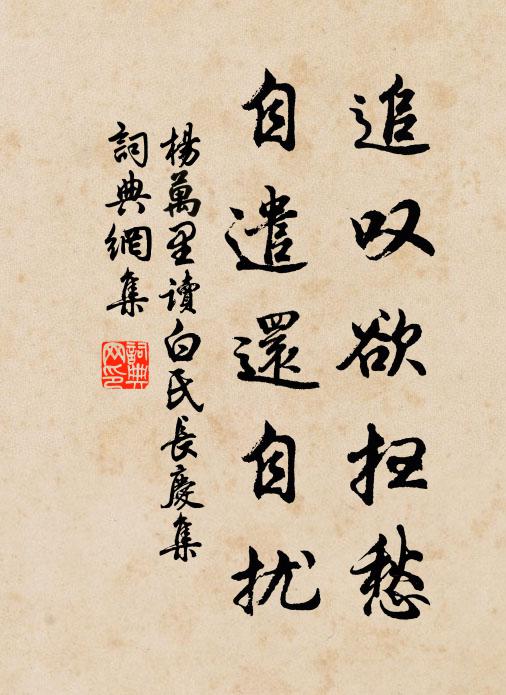 追叹欲抂愁
自遣還自扰
楊萬里讀白氏長慶集
詞典網集
詞典
网印